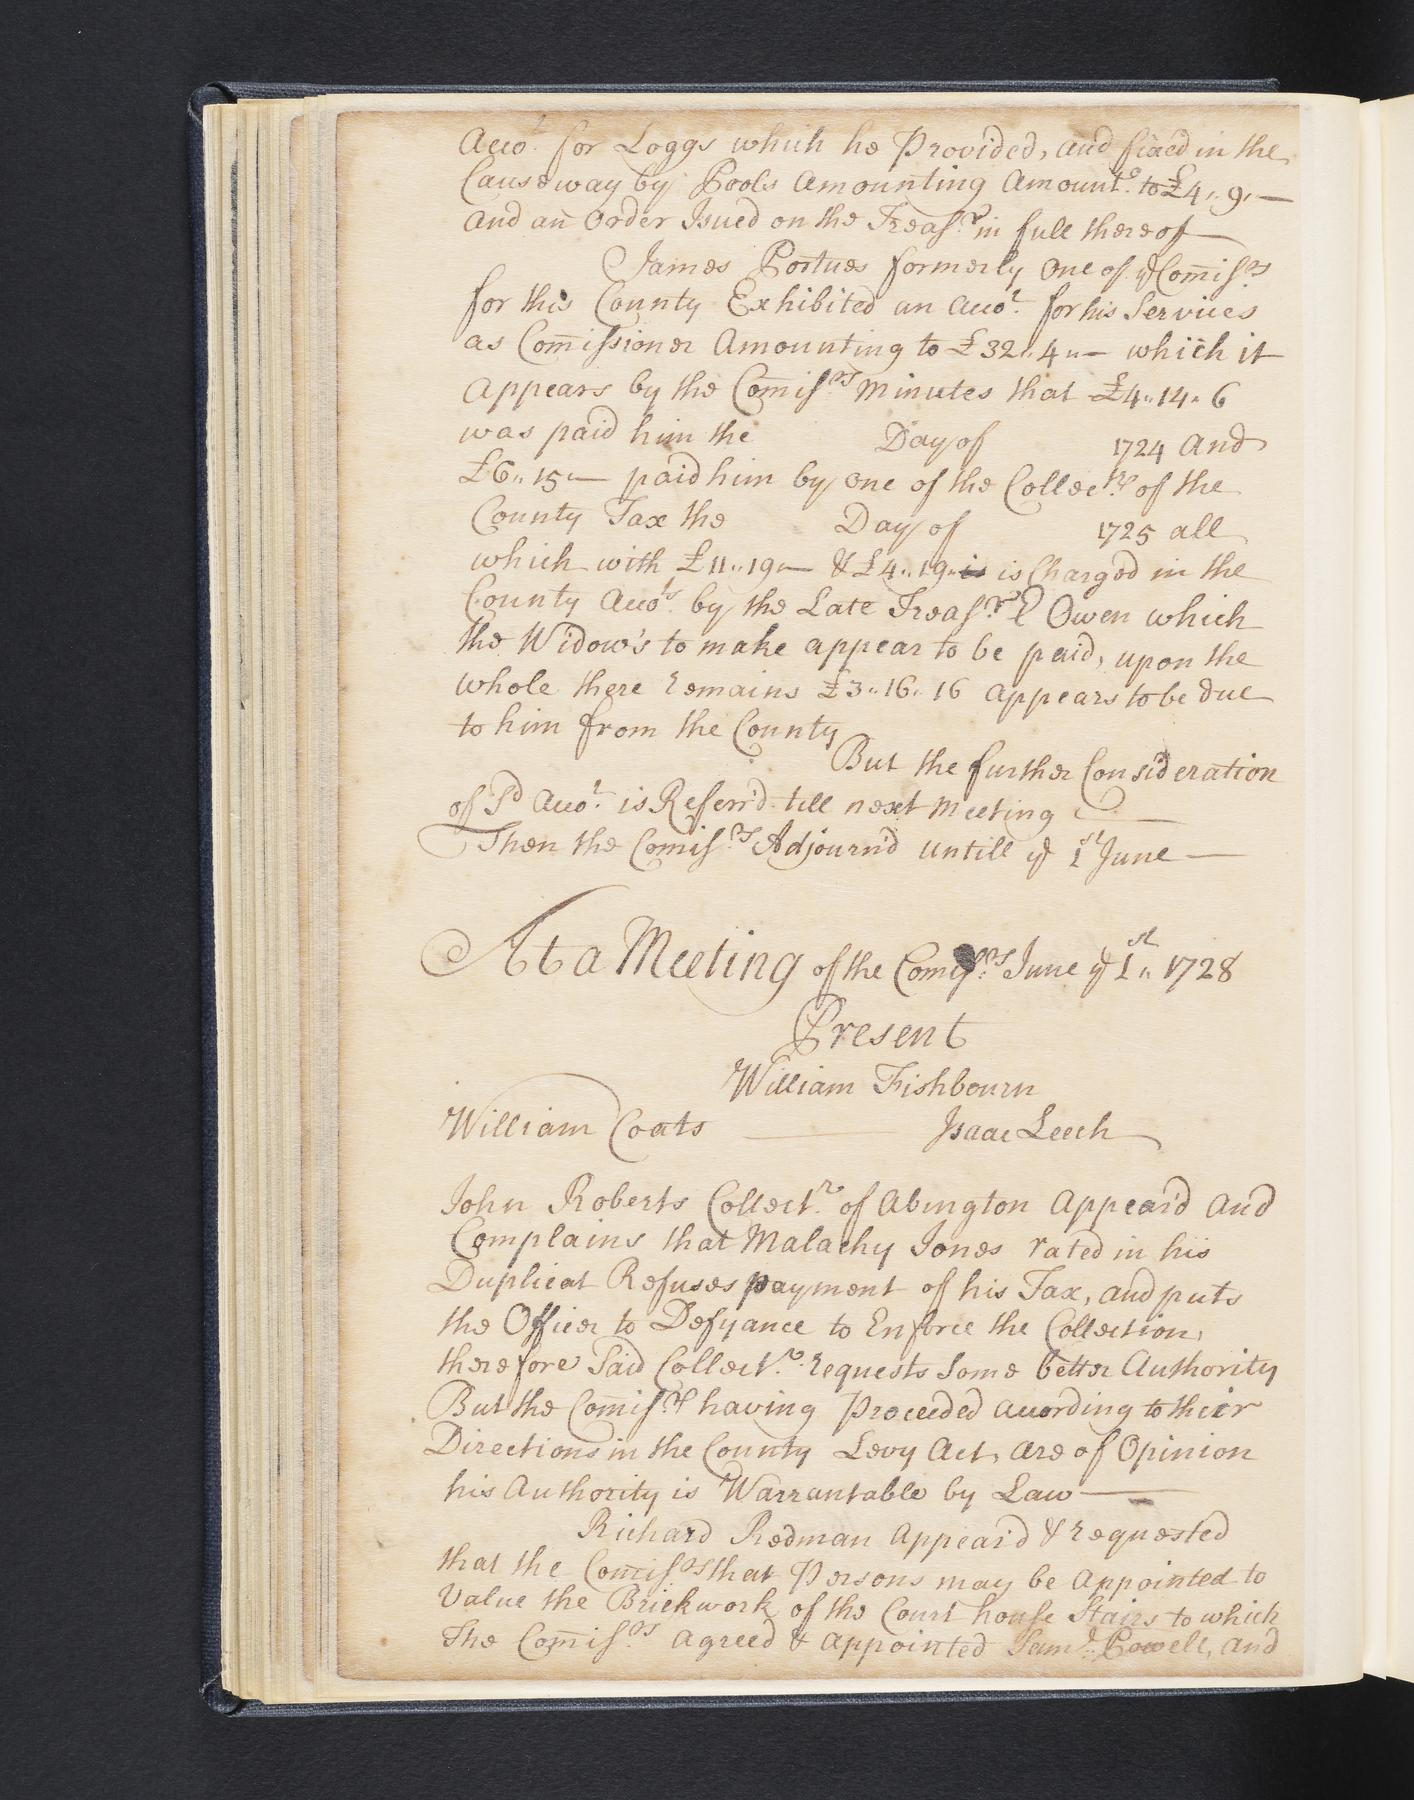 Acco.t for Loggs which he Provided, and fixed in the
Causeway by Pools Amounting Amount.g to £4,, 9,, —
And an Order Isued on the Treas.r in full thereof —
James Portues formerly One of ye Comis.rs
for this County Exhibited an Acco.t for his Servises
as Comissioner Amounting to £32,, 4,, — which it
Appears by the Comis.rs Minutes that £4,, 14,, 6
was paid him the Day of 1724 And
£6,, 15,, — paid him by One of the Collect.rs of the
County Tax the Day of 1725 all
which with £11,, 19,, — & £4,, 19,, is is Chargod in the
County Acco.ts by the Late Treas.r E Owen which
the Widow's to make appear to be paid, upon the
whole there remains £3,, 16,, 16 appears to be due
to him from the County
But the further Consideration
of Sd Acco.t is Referr'd till next Meeting —
Then the Comis.rs Adjourn'd Untill ye 1st June —
At a Meeting of the Comis.rs June ye 1st,, 1728
Present
William Fishbourn
William Coats — Isaac Leech
John Roberts Collect.r of Abington Appear'd And
Complains that Malachy Jones rated in his
Duplicat Refuses payment of his Tax, and puts
the Officer to Defyance to Enforce the Collection,
therefore Said Collect.r requests Some better Authority
But the Comis.rs having Proceeded according to their
Directions in the County Levy Act, are of Opinion
his Authority is Warrantable by Law —
Richard Redman Appear'd & requested
that the Comis.rs that Persons may be Appointed to
Value the Brickwork of the Court house Stairs to which
The Comis.rs Agreed & appointed Sam.l Powell, and